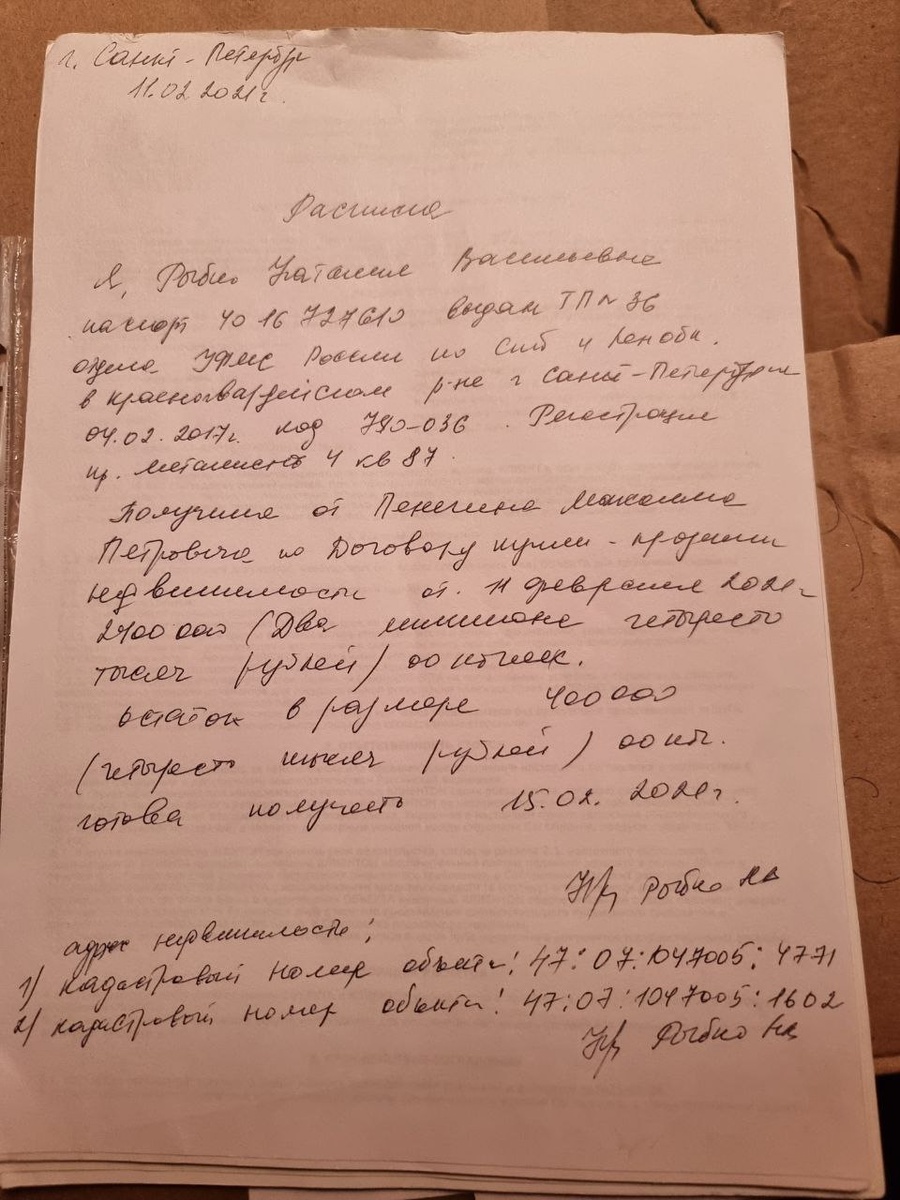 г. Санкт-Петербург
11.02 2021г.
Расписка
Я, Рыбко Наталия Васильевна
паспорт 40 16 727610 выдан ТП № 36
отдела УФМС России по СПб и Лен обл.
в Красногвардейском р-не г Санкт-Петербурга
04.02.2017г. код 780-036. Регистрация
пр. Металлистов 4 кв 87.
Получила от Пенегина Максима
Петровича по Договору купли-продажи
недвижимости от. 11 февраля 2021г
2400 000 (Два миллиона четыреста
тысяч рублей) 00 копеек.
Остаток в размере 400 000
(четыреста тысяч рублей) 00 коп.
готова получить 15.02. 2021г.
Рыбко НВ
адрес недвижимости:
1) кадастровый номер объекта: 47:07:1047005:4771
2) кадастровый номер объекта: 47:07:1047005:1602
Рыбко НВ